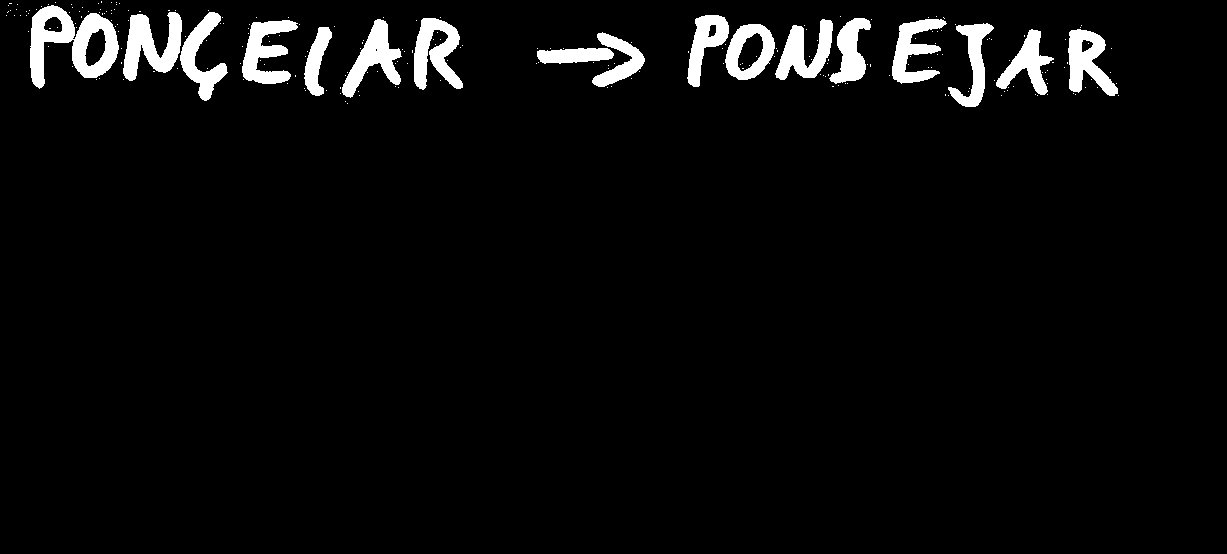 PONÇEIAR → PONSEJAR